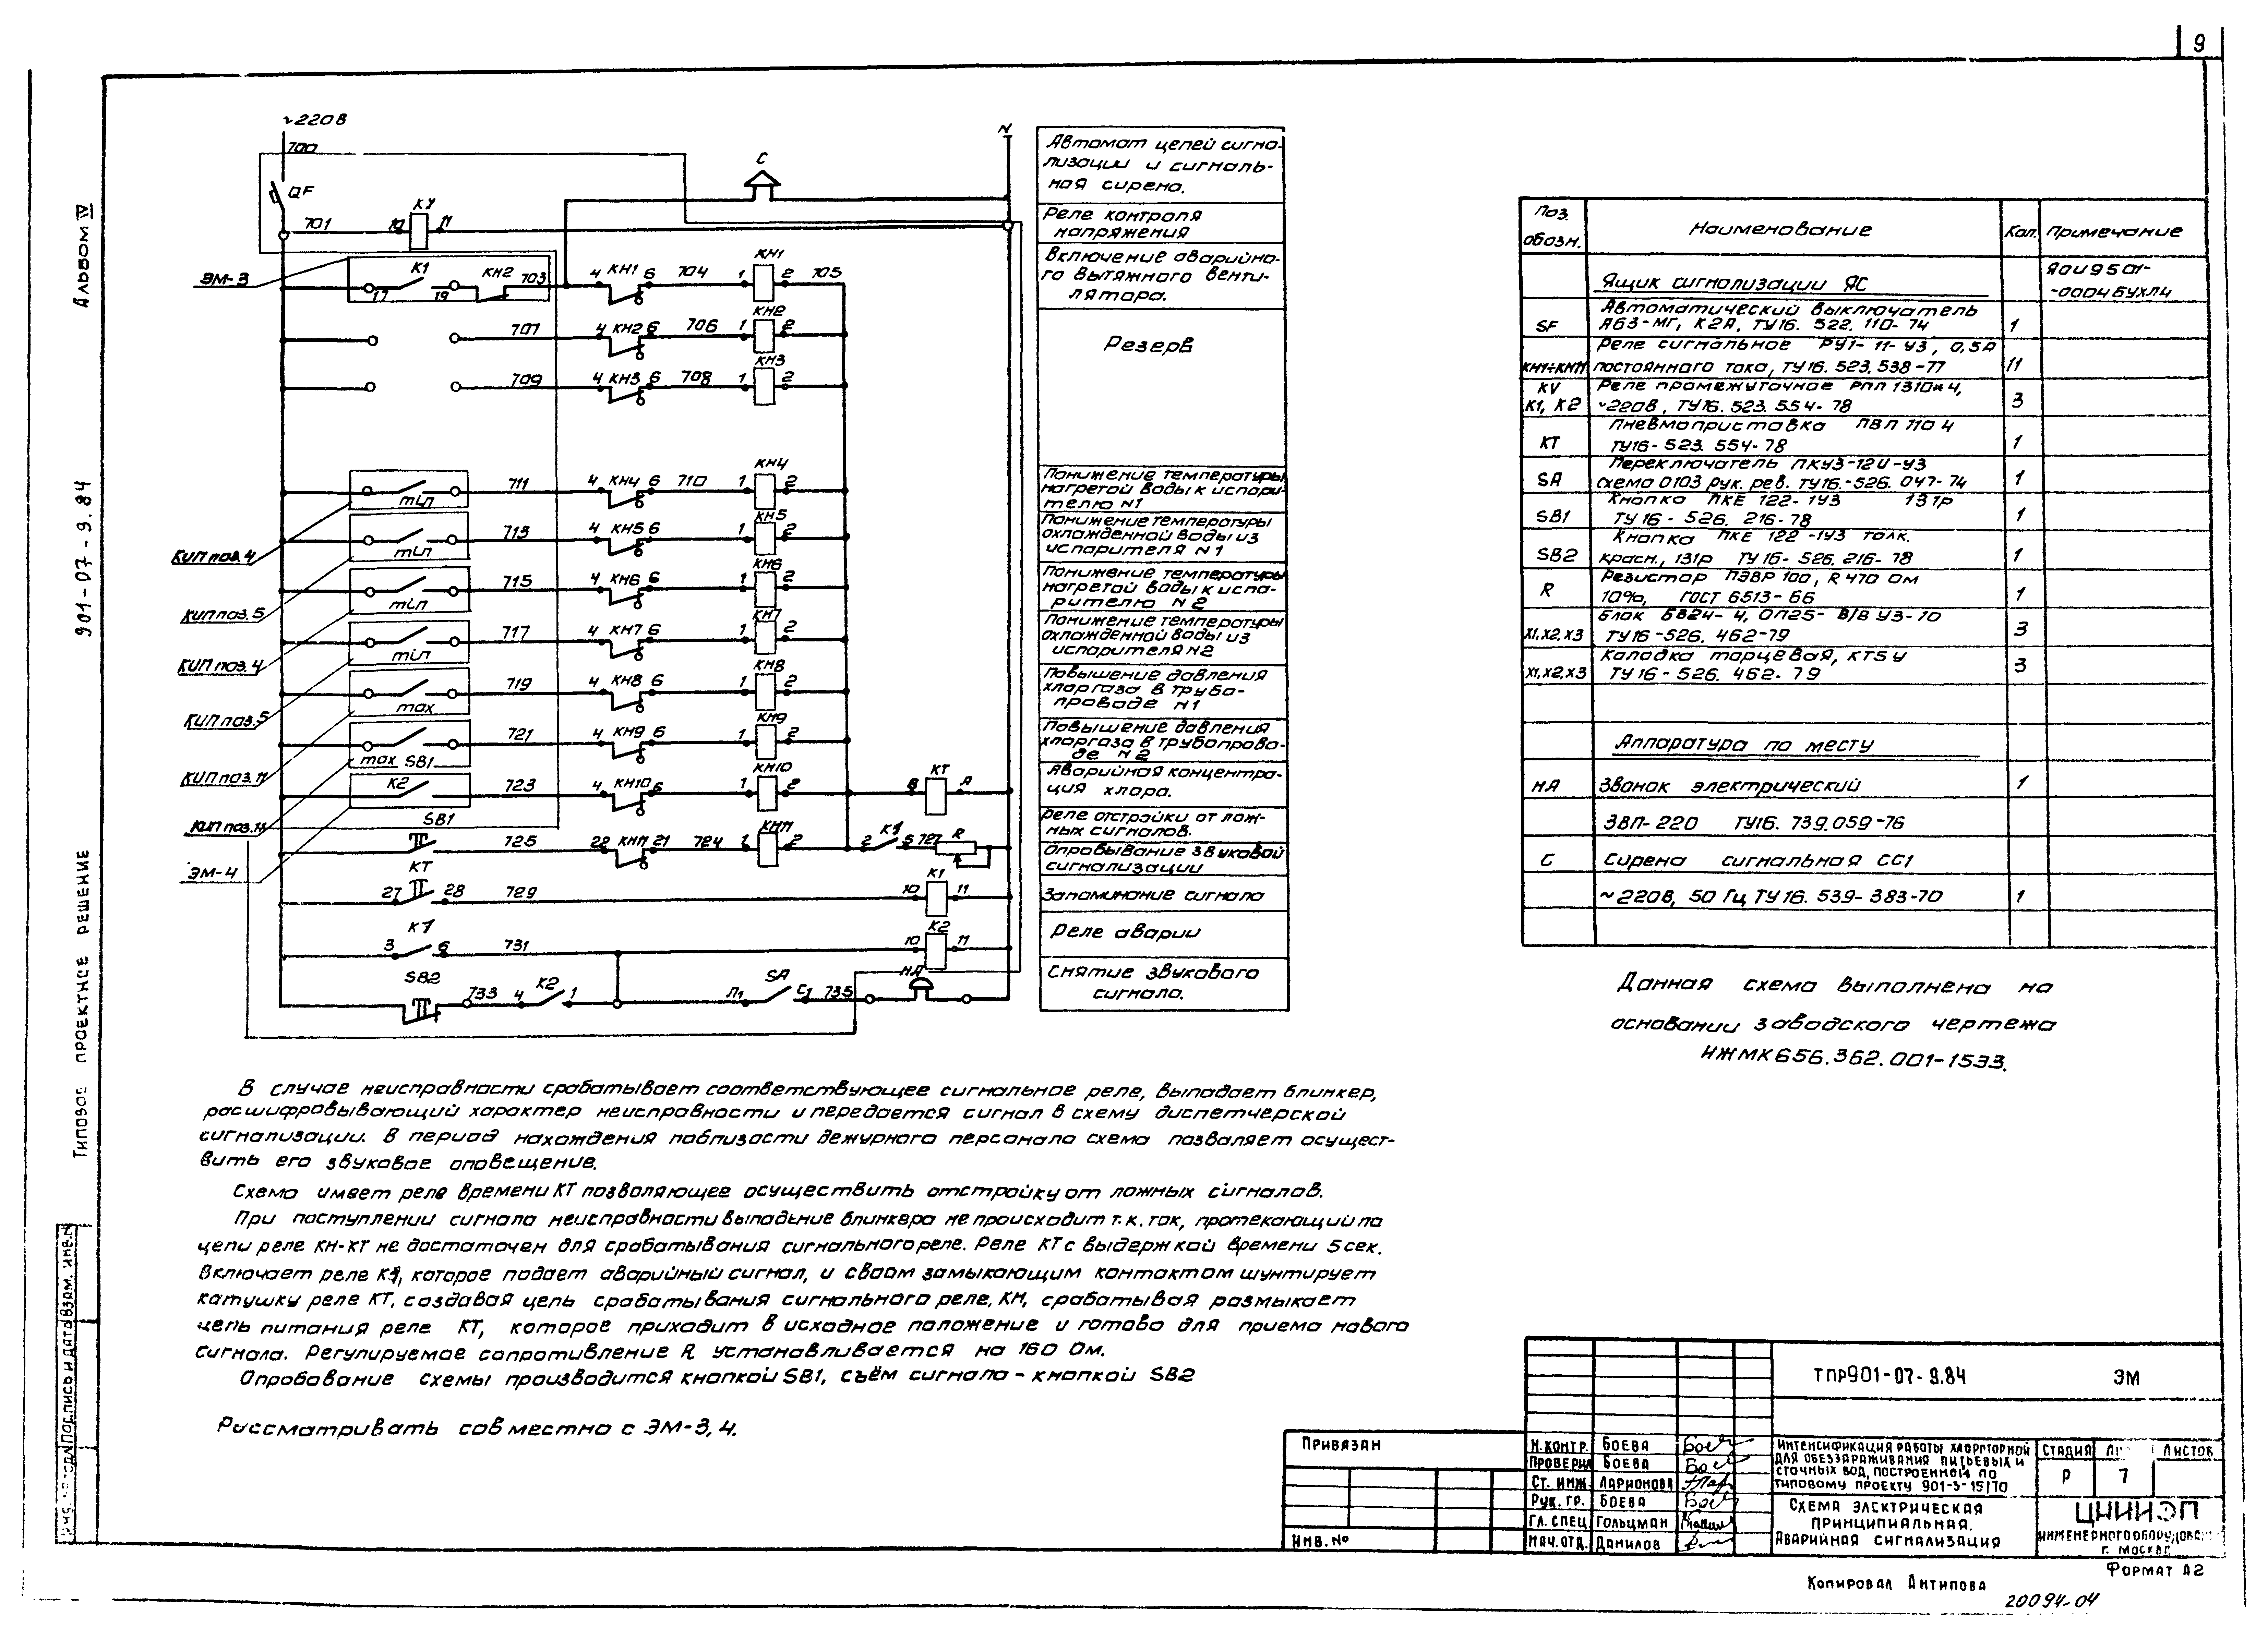 9
Альбом IV
901-07-9.84
Типовое проектное решение
~220В
700
QF
701
КУ
10
11
С
N
ЭМ-3
К1
17
19
КН2
703
4 КН1 6 704
1 КН1 2 705
707 4 КН2 6 706 1 КН2 2
709 4 КН3 6 708 1 КН3 2
min 711 4 КН4 6 710 1 КН4 2
КИП поз. 4
min 713 4 КН5 6 1 КН5 2
КИП поз. 5
min 715 4 КН6 6 1 КН6 2
КИП поз. 4
min 717 4 КН7 6 1 КН7 2
КИП поз. 5
max 719 4 КН8 6 1 КН8 2
КИП поз. 11
max SB1 721 4 КН9 6 1 КН9 2
КИП поз. 11
К2 723 4 КН10 6 1 КН10 2 В КТ А
ЭМ-4
SB1 725 22 КН11 21 724 1 КН11 2 2 К1 5 727 R
КТ 27 28 729 10 К1 11
К1 3 6 731 10 К2 11
SB2 733 4 К2 1 Л1 SA С1 735 НА
Автомат цепей сигна-
лизации и сигналь-
ная сирена.
Реле контроля
напряжения
Включение аварийно-
го вытяжного венти-
лятора.
Резерв
Понижение температуры
нагретой воды к испари-
телю N1
Понижение температуры
охлажденной воды из
испарителя N1
Понижение температуры
нагретой воды к испа-
рителю N2
Понижение температуры
охлажденной воды из
испарителя N2
Повышение давления
хлоргаза в трубо-
проводе N1
Повышение давления
хлоргаза в трубопрово-
де N2
Аварийная концентра-
ция хлора.
Реле отстройки от лож-
ных сигналов.
Опробывание звуковой
сигнализации
Запоминание сигнала
Реле аварии
Снятие звукового
сигнала.
Поз. обозн. Наименование Кол. Примечание
Ящик сигнализации ЯС ЯОУ9501-
-0004БУХЛ4
Автоматический выключатель
SF А63-МГ, К2А, ТУ16.522.110-74 1
Реле сигнальное РУ1-11-У3, 0,5А
КН1÷КН11 постоянного тока, ТУ16.523.538-77 11
KV Реле промежуточное РПЛ 1310*4,
К1, К2 ~220В, ТУ16.523.554-78 3
Пневмоприставка ПВЛ 1104
КТ ТУ16-523.554-78 1
Переключатель ПКУ3-12И-У3
SA схема 0103 рук. рев. ТУ16.-526.047-74 1
Кнопка ПКЕ 122-1У3 131р
SB1 ТУ16-526.216-78 1
Кнопка ПКЕ 122-1У3 толк.
SB2 красн., 131р ТУ16-526.216-78 1
Резистор ПЭВР 100, R 470 Ом
R 10%, ГОСТ 6513-66 1
Блок БЗ24-4,0П25-В/В У3-10
Х1,Х2,Х3 ТУ16-526.462-79 3
Колодка торцевая, КТ5У
Х1,Х2,Х3 ТУ16-526.462-79 3
Аппаратура по месту
НА Звонок электрический 1
ЗВП-220 ТУ16.739.059-76
С Сирена сигнальная СС1
~220В, 50 Гц ТУ16.539-383-70 1
Данная схема выполнена на
основании заводского чертежа
ИЖМК656.362.001-15ЭЗ.
В случае неисправности срабатывает соответствующее сигнальное реле, выпадает блинкер,
расшифровывающий характер неисправности и передается сигнал в схему диспетчерской
сигнализации. В период нахождения поблизости дежурного персонала схема позваляет осущест-
вить его звуковое оповещение.
Схема имеет реле времени КТ позволяющее осуществить отстройку от ложных сигналов.
При поступлении сигнала неисправности выпадение блинкера не происходит т.к. ток, протекающий по
цепи реле КН-КТ не достаточен для срабатывания сигнального реле. Реле КТ с выдержкой времени 5 сек.
включает реле К1, которое подает аварийный сигнал, и своим замыкающим контактом шунтирует
катушку реле КТ, создавая цепь срабатывания сигнального реле, КН, срабатывая размыкает
цепь питания реле КТ, которое приходит в исходное положение и готово для приема нового
сигнала. Регулируемое сопротивление R устанавливается на 160 Ом.
Опробование схемы производится кнопкой SB1, съём сигнала - кнопкой SB2
Рассматривать совместно с ЭМ-3, 4.
Подпись и дата
Взам. инв. N
Привязан
Инв. №
ТПР901-07-9.84 ЭМ
Н.контр. Боева
Проверил Боева
Ст. инж. Ларионова
Рук. гр. Боева
Гл. спец. Гольцман
Нач. отд. Данилов
Интенсификация работы хлораторной
для обеззараживания питьевых и
сточных вод, построенной по
типовому проекту 901-3-15/70
Стадия Листов
Р 7
Схема электрическая
принципиальная.
Аварийная сигнализация
ЦНИИЭП
инженерного оборудования
г. Москва
Формат А2
Копировал Антипова
20094-04